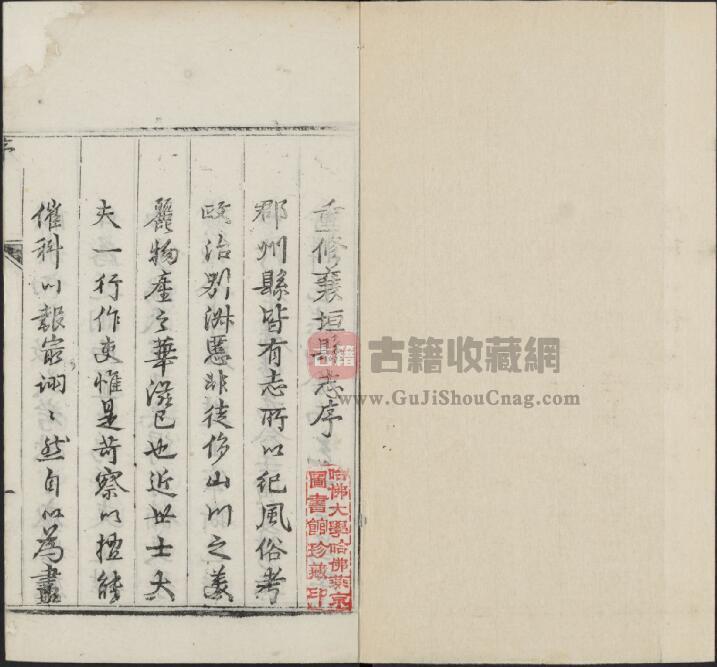 重修襄垣縣志序
郡州縣皆有志所以紀風俗考
政治別淑慝非徒侈山川之美
麗物產之華滋已也近世士大
夫一行作吏惟是苛察以擅能
催科以報最詡〻然自以為盡
哈佛大學哈佛燕京
圖書館珍藏印
古籍收藏網
www.GuJiShouCnag.com
序
一